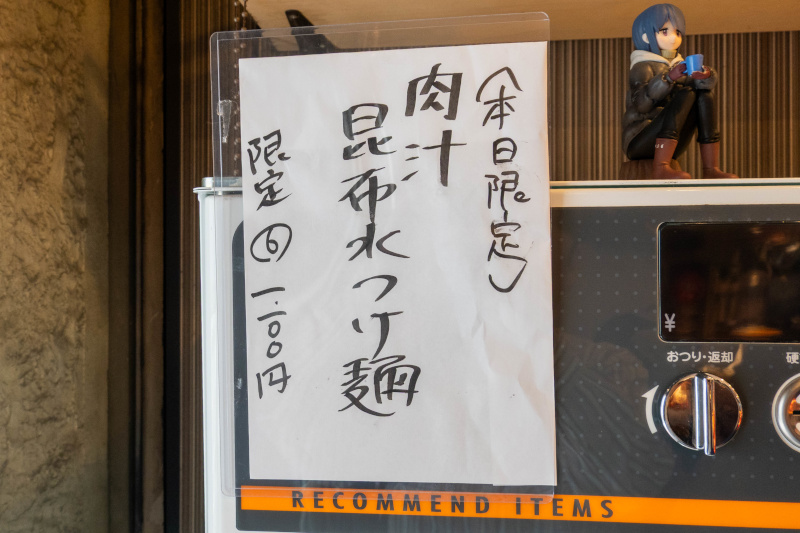 〈本日限定〉
肉汁
昆布水つけ麺
限定⑥ 一.一〇〇円
¥
おつり・返却
硬
RECOMMEND ITEMS